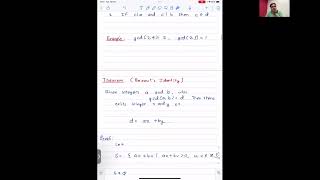 2. If c|a and c|b then c ≤ d.
Example: gcd(2,4) = 2, gcd(2,3) = 1
Theorem (Bezout's Identity)
Given integers a and b, with
gcd(a,b) = d. Then there
exists integer x and y s.t.
d = ax + by.
Proof:
Let
S = { au + bv | au + bv > 0, u,
S ≠ φ